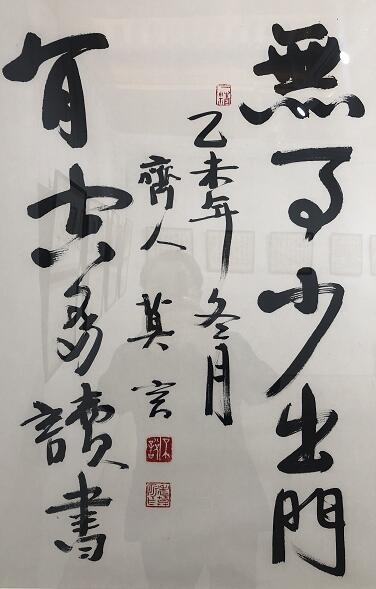 無事少出門
乙未年 冬月
齊人 莫言
有空多讀書